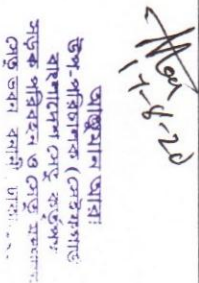 17-8-20
আঞ্জুমান আরা
উপ-পরিচালক
বাংলাদেশ সেতু কর্তৃপক্ষ
সড়ক পরিবহন ও সেতু মন্ত্রণালয়
সেতু ভবন বনানী, ঢাকা